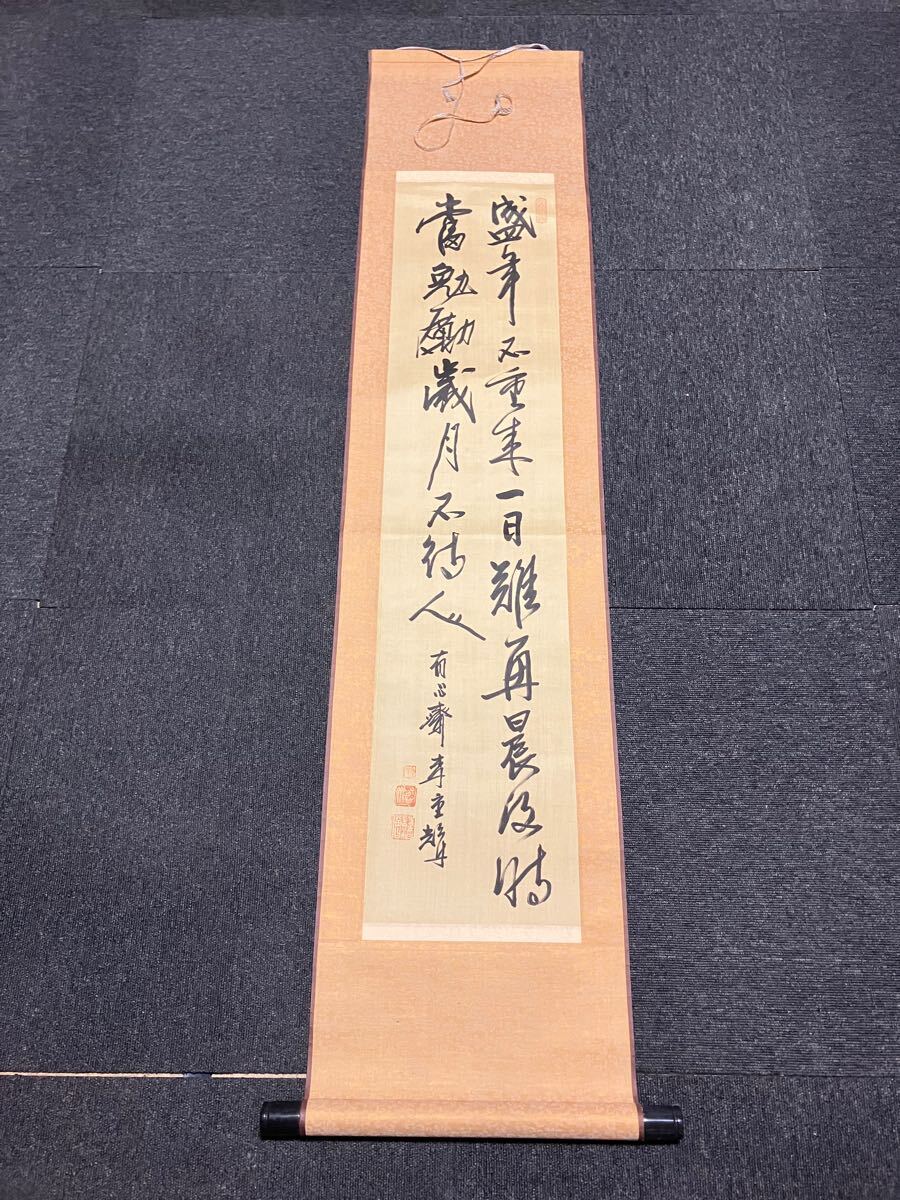 盛年不重来一日難再晨及時
當勉勵歲月不待人
有心齋